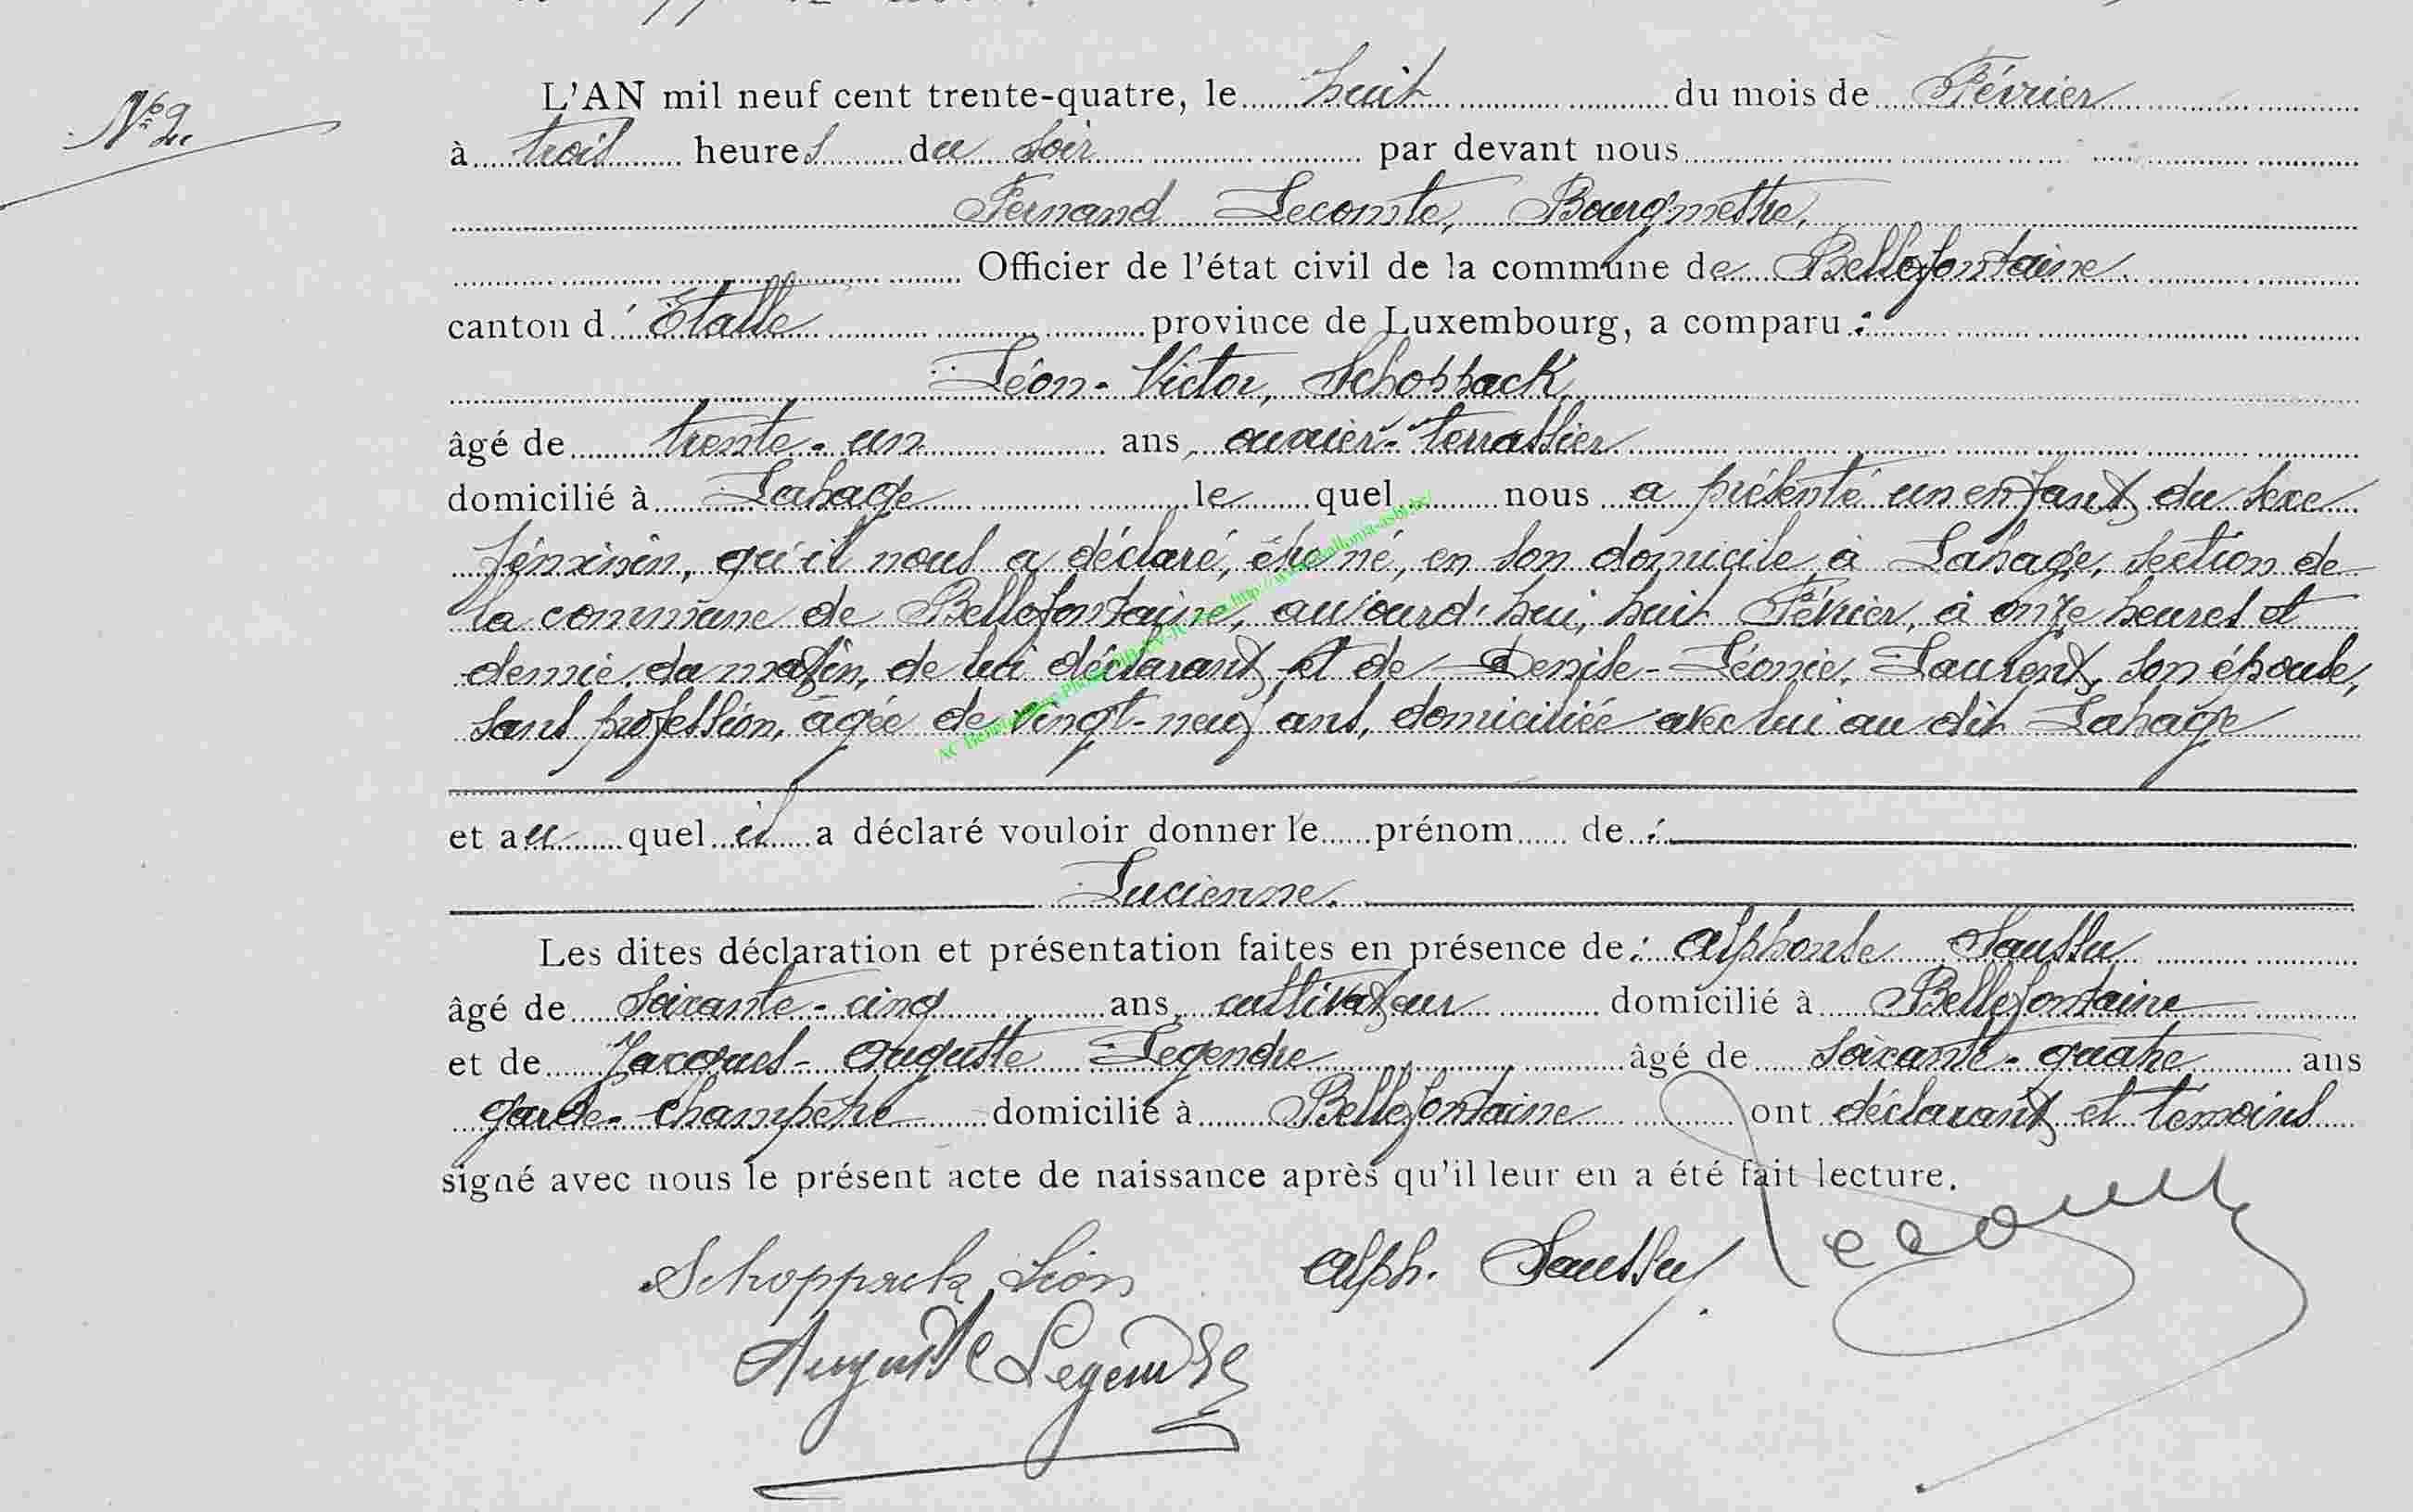 N° 2.
L'AN mil neuf cent trente-quatre, le huit du mois de Février
à trois heures du soir par devant nous
Fernand Lecomte, Bourgmestre,
Officier de l'état civil de la commune de Bellefontaine.
canton d'Etalle province de Luxembourg, a comparu :
Léon-Victor, Schoppack,
âgé de trente-un ans, ouvrier-terrassier
domicilié à Lahage le quel nous a présenté un enfant du sexe
féminin, qu'il nous a déclaré, être né, en son domicile à Lahage, section de
la commune de Bellefontaine, aujourd'hui, huit Février, à onze heures et
demie du matin, de lui déclarant et de Denise-Léonie, Laurent, son épouse,
sans profession, âgée de vingt-neuf ans, domiciliée avec lui au dit Lahage
et au quel il a déclaré vouloir donner le prénom de :
Lucienne.
Les dites déclaration et présentation faites en présence de : Alphonse Saussu
âgé de soixante-cinq ans, cultivateur domicilié à Bellefontaine
et de Jacques-Auguste Legendre âgé de soixante-quatre ans
garde-champêtre domicilié à Bellefontaine ont déclarant et témoins
signé avec nous le présent acte de naissance après qu'il leur en a été fait lecture.
Schoppack Léon Alph. Saussu Lecomte
Auguste Legendre